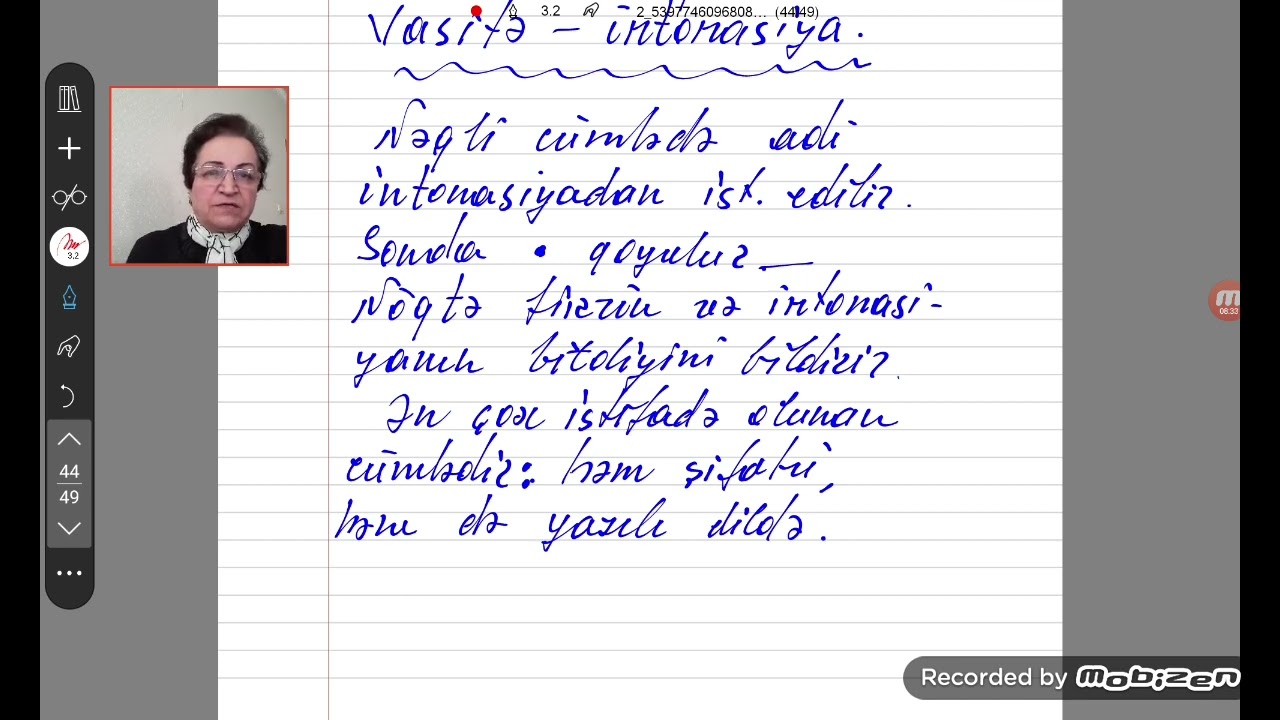 3.2 2_5397746096808... (44\49)
Vasitə – intonasiya.
Nəqli cümlədə adi
intonasiyadan ist. edilir.
Sonda • qoyulur —
Nöqtə fikrin və intonasi-
yanın bitdiyini bildirir.
Ən çox istifadə olunan
cümlədir: həm şifahi,
həm də yazılı dildə.
3.2
44
49
06:33
Recorded by mobizen